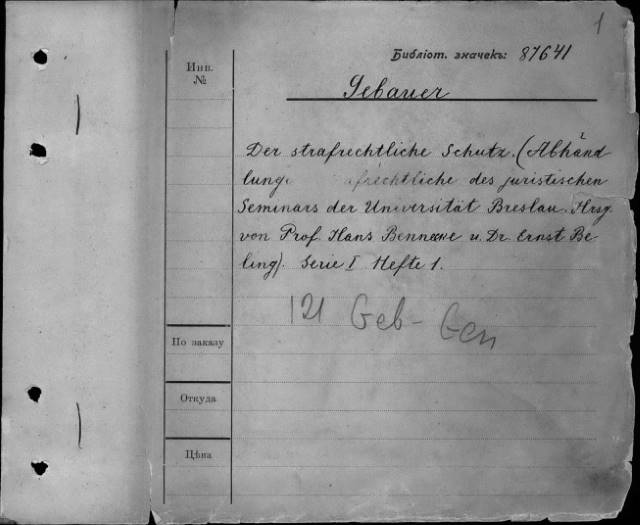 1
Библіот. значекъ: 87641
Инв.
№
Gebauer
Der strafrechtliche Schutz. (Abhänd
lung afrechtliche des juristischen
Seminars der Universität Breslau. Hrsg.
von Prof. Hans Bennecke u. Dr. Ernst Be-
ling). Serie I Hefte 1.
121 Geb - Gen
По заказу
Откуда
Цѣна